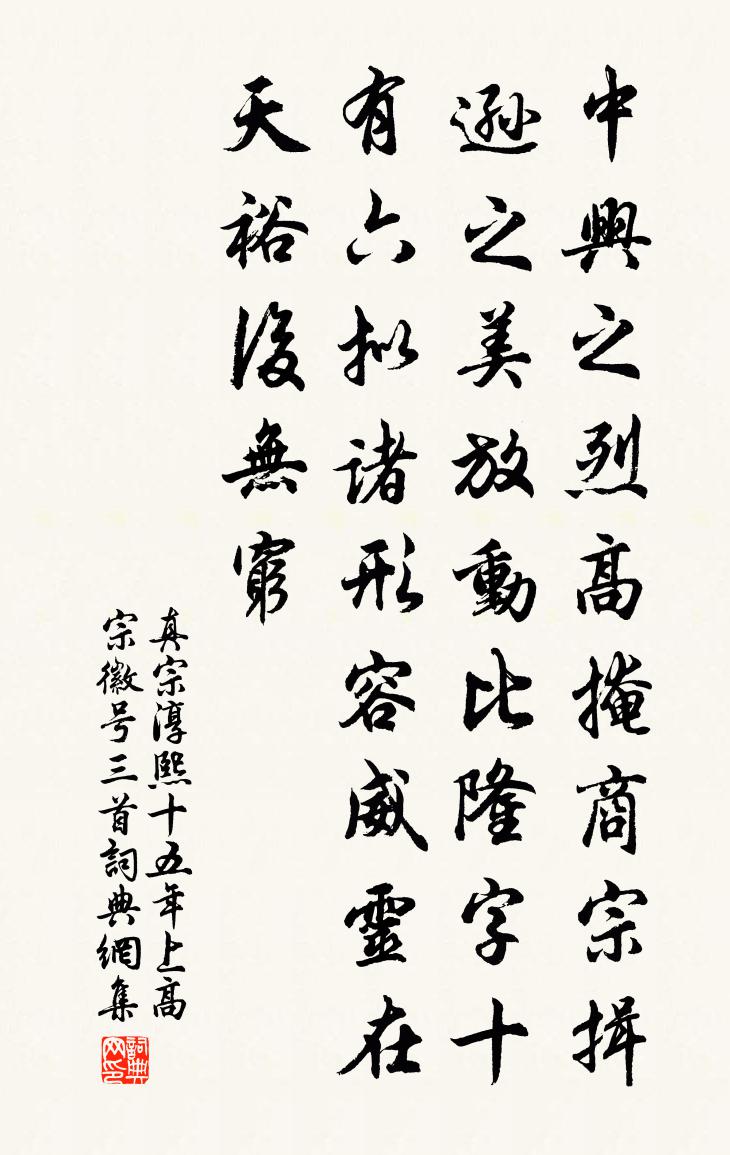 中興之烈高掩商宗揖
遜之美放動比隆字十
有六拟諸形容威靈在
天裕後無窮
真宗淳熙十五年上高
宗徽号三首詞典網集
詞典
网印